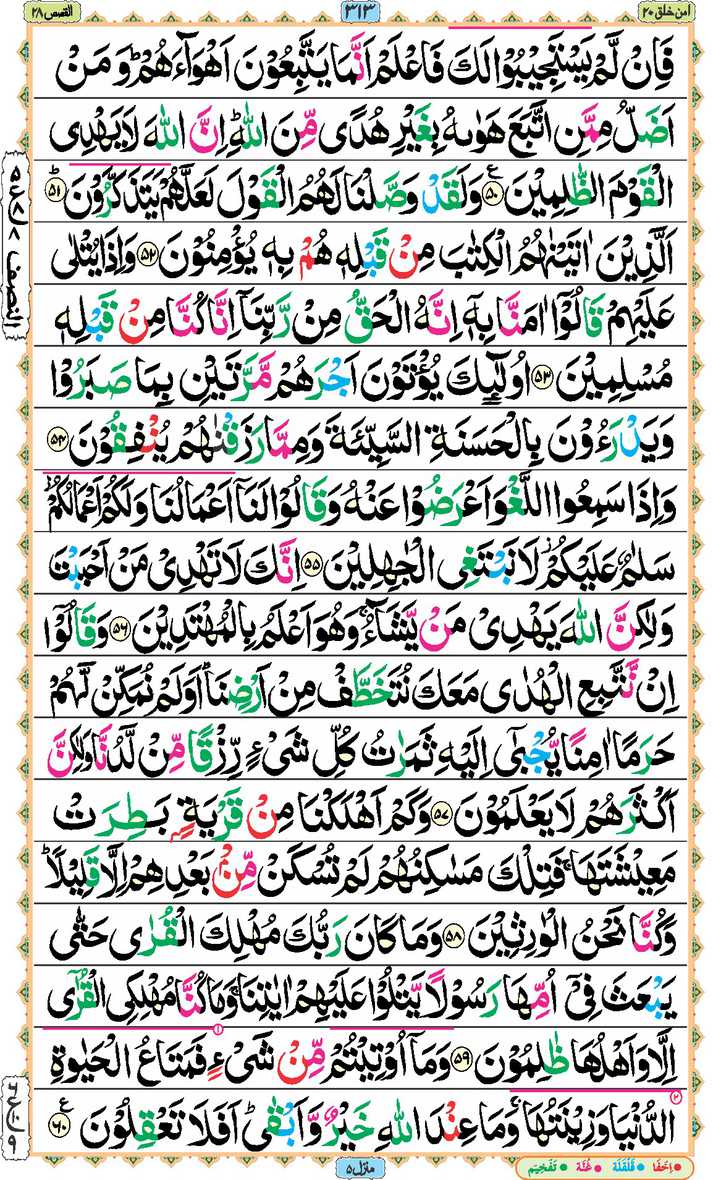 اَمَّنْ خَلَقَ ٢٠
٣١٣
القصص ٢٨
فَاِنْ لَّمْ يَسْتَجِيْبُوْا لَكَ فَاعْلَمْ اَنَّمَا يَتَّبِعُوْنَ اَهْوَآءَهُمْ ؕ وَ مَنْ
اَضَلُّ مِمَّنِ اتَّبَعَ هَوٰىهُ بِغَيْرِ هُدًى مِّنَ اللّٰهِ ؕ اِنَّ اللّٰهَ لَا يَهْدِى
الْقَوْمَ الظّٰلِمِيْنَ ﴿۵۰﴾ ع وَلَقَدْ وَصَّلْنَا لَهُمُ الْقَوْلَ لَعَلَّهُمْ يَتَذَكَّرُوْنَ ﴿۵۱﴾ ؕ
اَلَّذِيْنَ اٰتَيْنٰهُمُ الْكِتٰبَ مِنْ قَبْلِهٖ هُمْ بِهٖ يُؤْمِنُوْنَ ﴿۵۲﴾ وَاِذَا يُتْلٰى
عَلَيْهِمْ قَالُوْۤا اٰمَنَّا بِهٖۤ اِنَّهُ الْحَقُّ مِنْ رَّبِّنَاۤ اِنَّا كُنَّا مِنْ قَبْلِهٖ
مُسْلِمِيْنَ ﴿۵۳﴾ اُولٰٓئِكَ يُؤْتَوْنَ اَجْرَهُمْ مَّرَّتَيْنِ بِمَا صَبَرُوْا
وَيَدْرَءُوْنَ بِالْحَسَنَةِ السَّيِّئَةَ وَمِمَّا رَزَقْنٰهُمْ يُنْفِقُوْنَ ﴿۵۴﴾
وَاِذَا سَمِعُوا اللَّغْوَ اَعْرَضُوْا عَنْهُ وَقَالُوْا لَنَاۤ اَعْمَالُنَا وَلَكُمْ اَعْمَالُكُمْ
سَلٰمٌ عَلَيْكُمْ لَا نَبْتَغِى الْجٰهِلِيْنَ ﴿۵۵﴾ اِنَّكَ لَا تَهْدِىْ مَنْ اَحْبَبْتَ
وَلٰكِنَّ اللّٰهَ يَهْدِىْ مَنْ يَّشَآءُ ۚ وَهُوَ اَعْلَمُ بِالْمُهْتَدِيْنَ ﴿۵۶﴾ وَقَالُوْۤا
اِنْ نَّتَّبِعِ الْهُدٰى مَعَكَ نُتَخَطَّفْ مِنْ اَرْضِنَا ؕ اَوَلَمْ نُمَكِّنْ لَّهُمْ
حَرَمًا اٰمِنًا يُّجْبٰٓى اِلَيْهِ ثَمَرٰتُ كُلِّ شَىْءٍ رِّزْقًا مِّنْ لَّدُنَّا وَلٰكِنَّ
اَكْثَرَهُمْ لَا يَعْلَمُوْنَ ﴿۵۷﴾ وَكَمْ اَهْلَكْنَا مِنْ قَرْيَةٍۭ بَطِرَتْ
مَعِيْشَتَهَا ۚ فَتِلْكَ مَسٰكِنُهُمْ لَمْ تُسْكَنْ مِّنْۢ بَعْدِهِمْ اِلَّا قَلِيْلًا ؕ
وَكُنَّا نَحْنُ الْوٰرِثِيْنَ ﴿۵۸﴾ وَمَا كَانَ رَبُّكَ مُهْلِكَ الْقُرٰى حَتّٰى
يَبْعَثَ فِىْۤ اُمِّهَا رَسُوْلًا يَّتْلُوْا عَلَيْهِمْ اٰيٰتِنَا ۚ وَمَا كُنَّا مُهْلِكِى الْقُرٰٓى
اِلَّا وَاَهْلُهَا ظٰلِمُوْنَ ﴿۵۹﴾ وَمَاۤ اُوْتِيْتُمْ مِّنْ شَىْءٍ فَمَتَاعُ الْحَيٰوةِ
الدُّنْيَا وَزِيْنَتُهَا ۚ وَمَا عِنْدَ اللّٰهِ خَيْرٌ وَّاَبْقٰى ؕ اَفَلَا تَعْقِلُوْنَ ﴿۶۰﴾ ع
النصف
منزل ۵
اِخْفَا قَلْقَلَه غُنَّه تَفْخِيْم